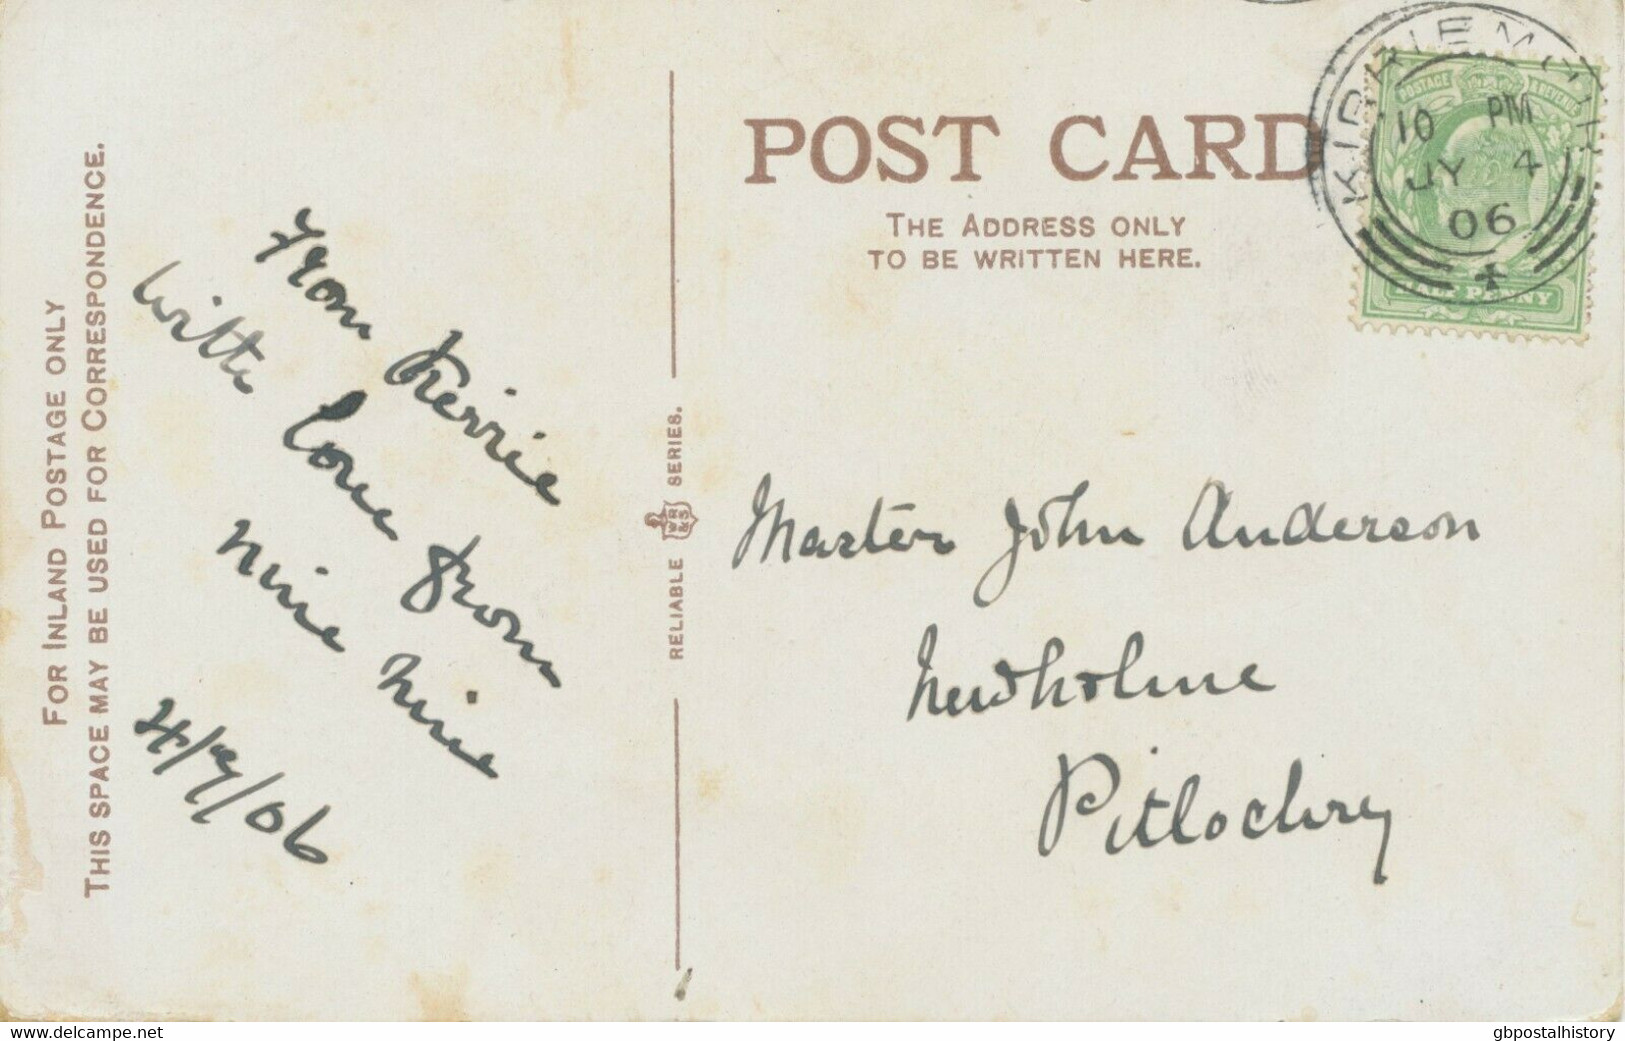 FOR INLAND POSTAGE ONLY
THIS SPACE MAY BE USED FOR CORRESPONDENCE.
From Kirrie
with love from
4/7/06
RELIABLE WR&S SERIES.
POST CARD
THE ADDRESS ONLY
TO BE WRITTEN HERE.
KIRRIEMUIR
10 PM
JY 4
06
POSTAGE & REVENUE
HALF PENNY
Master John Anderson
Newholme
Pitlochry
delcampe.net
gbpostalhistory